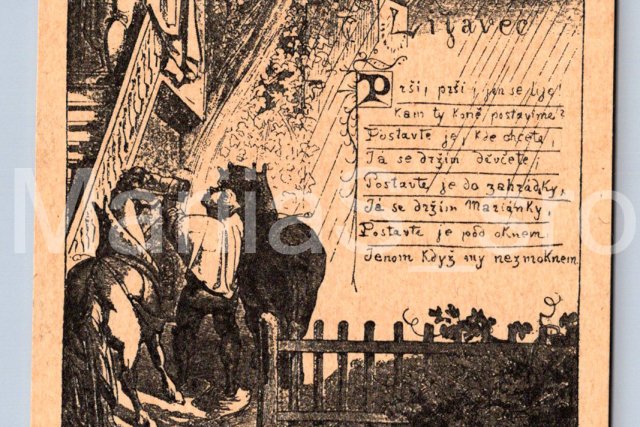 Lijavec
Prší, prší, jen se lije!
Kam ty koně postavíme?
Postavte je, kde chcete,
Já se držím děvčete,
Postavte je do zahrádky,
Já se držím Mariánky,
Postavte je pod oknem
Jenom když my nezmoknem